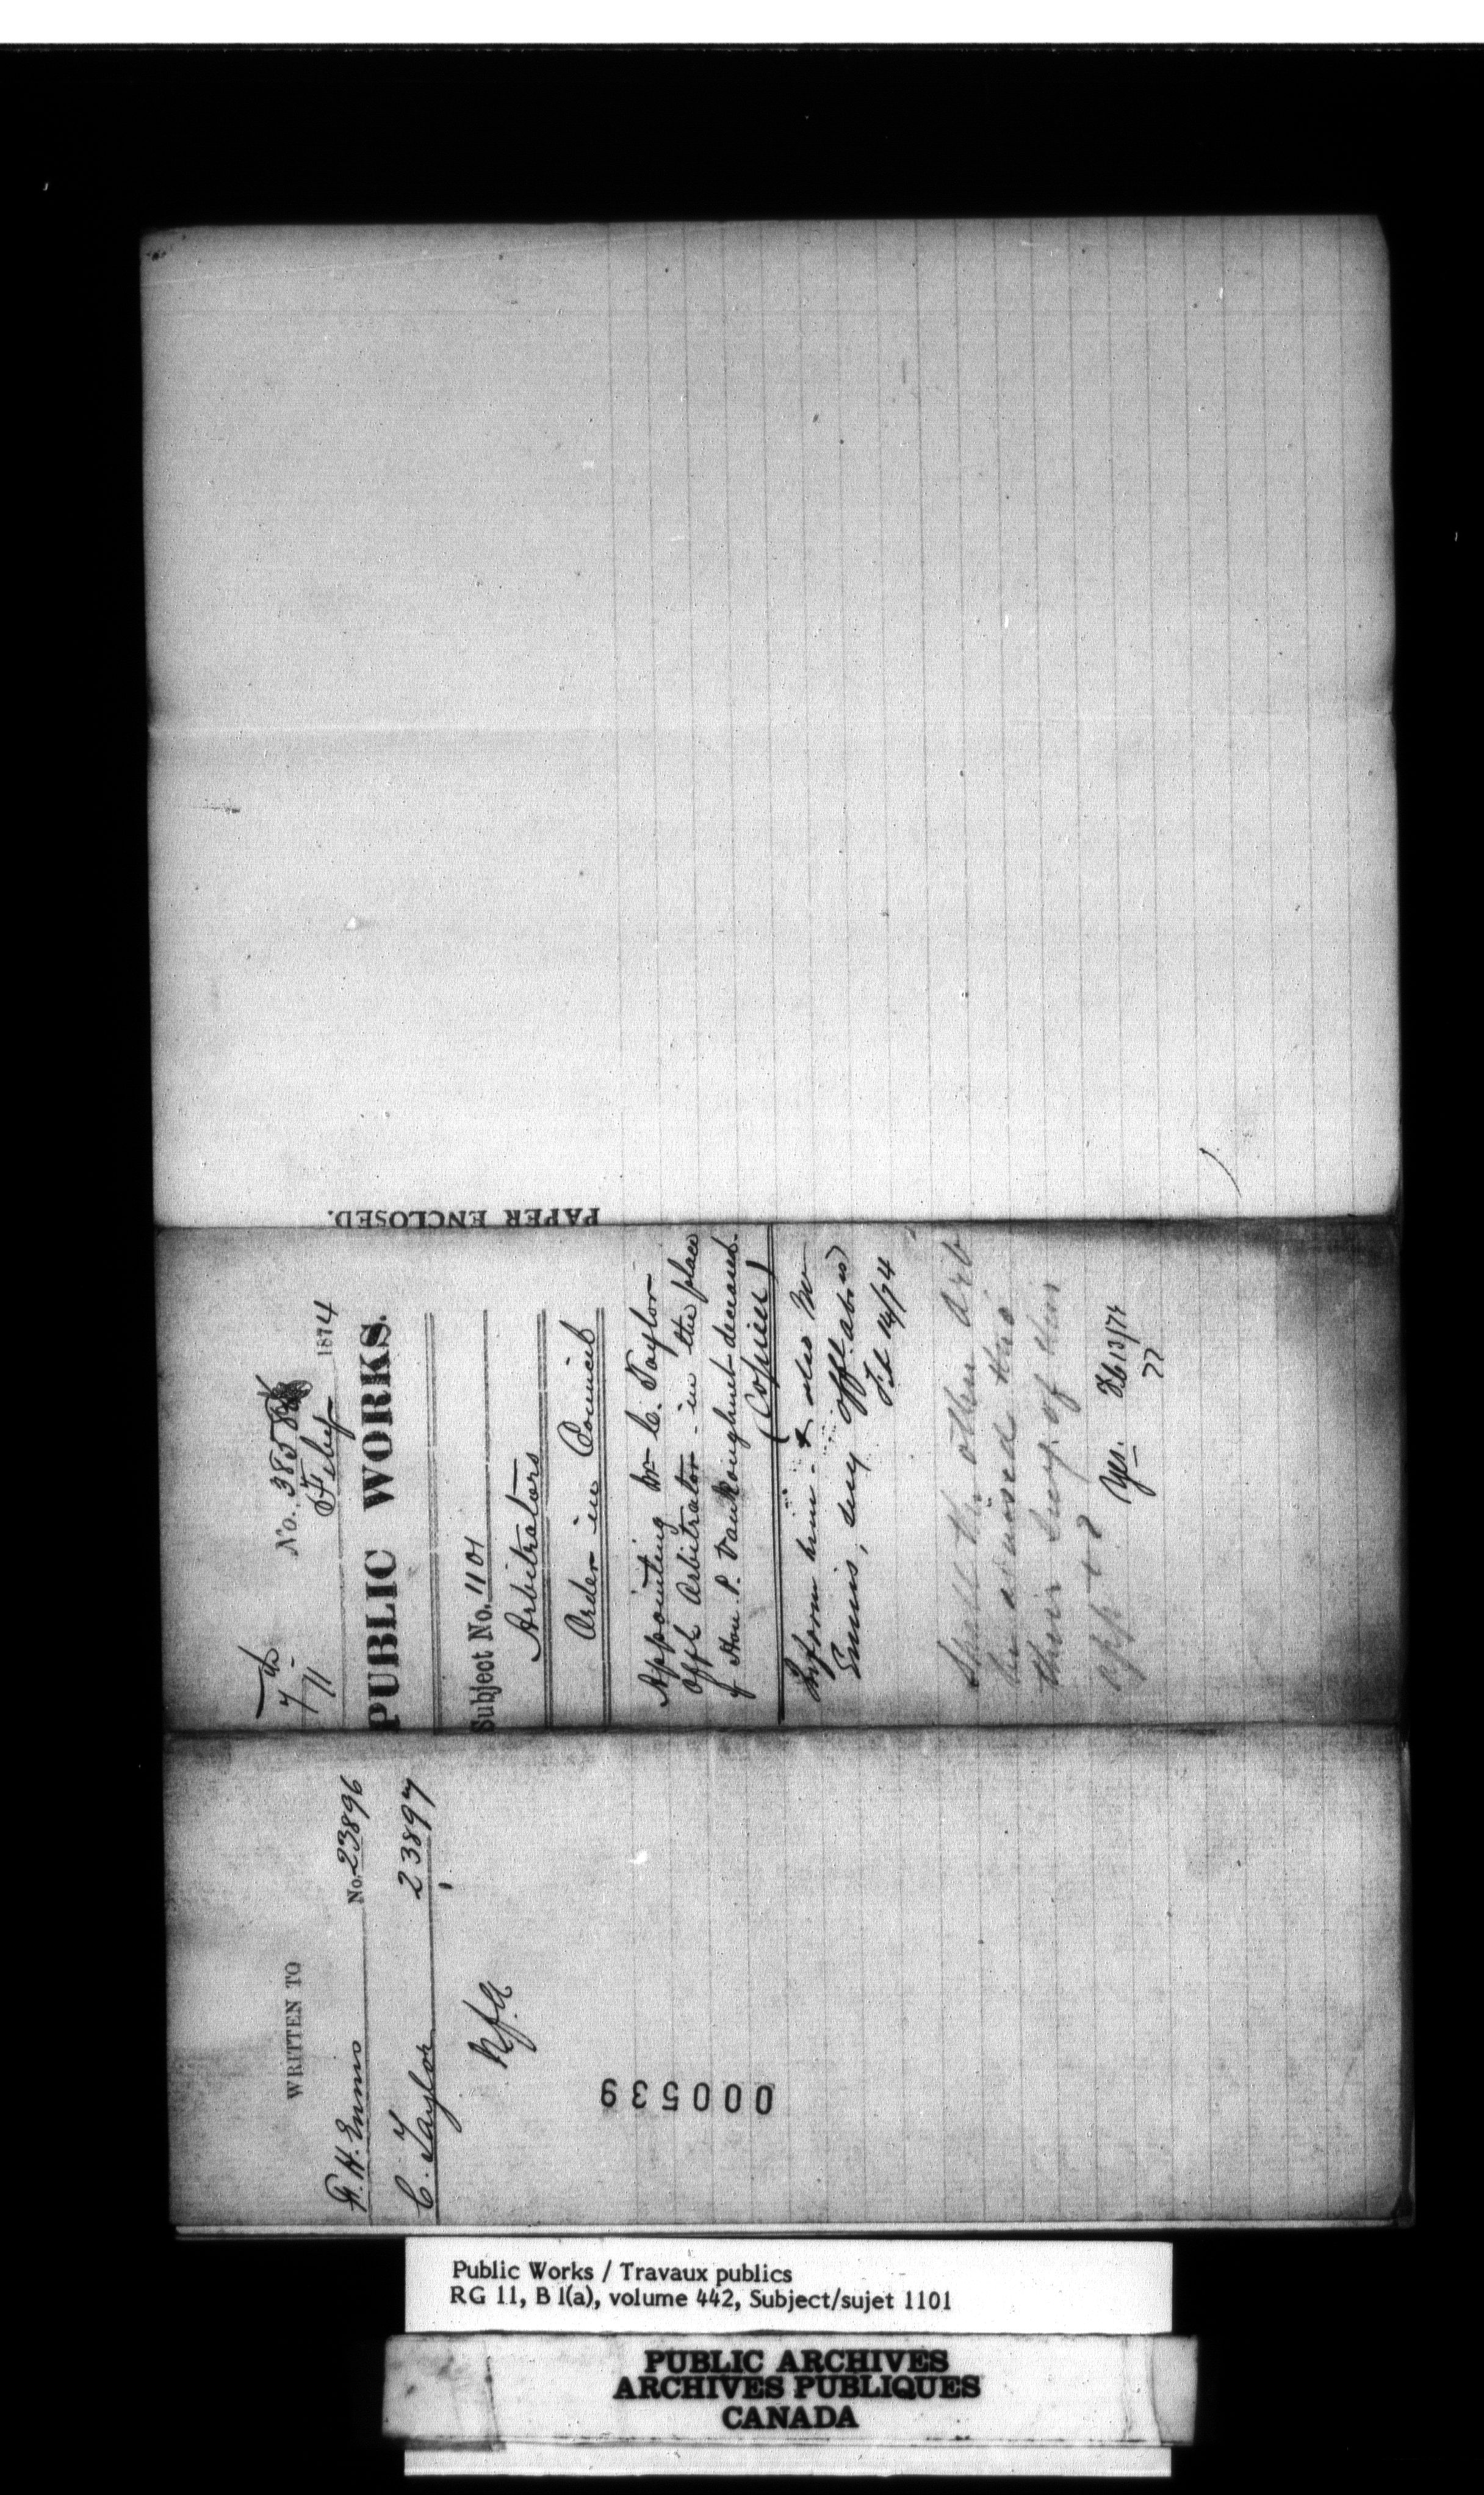 PAPER ENCLOSED.
7th
7/11
No. 3858
Feby 1874
PUBLIC WORKS.
Subject No. 1101
Arbitrators
Order in Council
Appointing Mr C. Taylor
Offl Arbitrator in the place
of Hon. P. VanKoughnet deceased.
(Copies)
Inform him - & also Mr
Ennis, Secy Offl Arbns
Feb 14/74
Shall the other Arb
be advised thro
their Secy. of this
app t?
Yes. Feb 13/74
WRITTEN TO
F. H. Ennis No. 23896
C. Taylor 23897
Nfa
000539
Public Works / Travaux publics
RG 11, B 1(a), volume 442, Subject/sujet 1101
PUBLIC ARCHIVES
ARCHIVES PUBLIQUES
CANADA